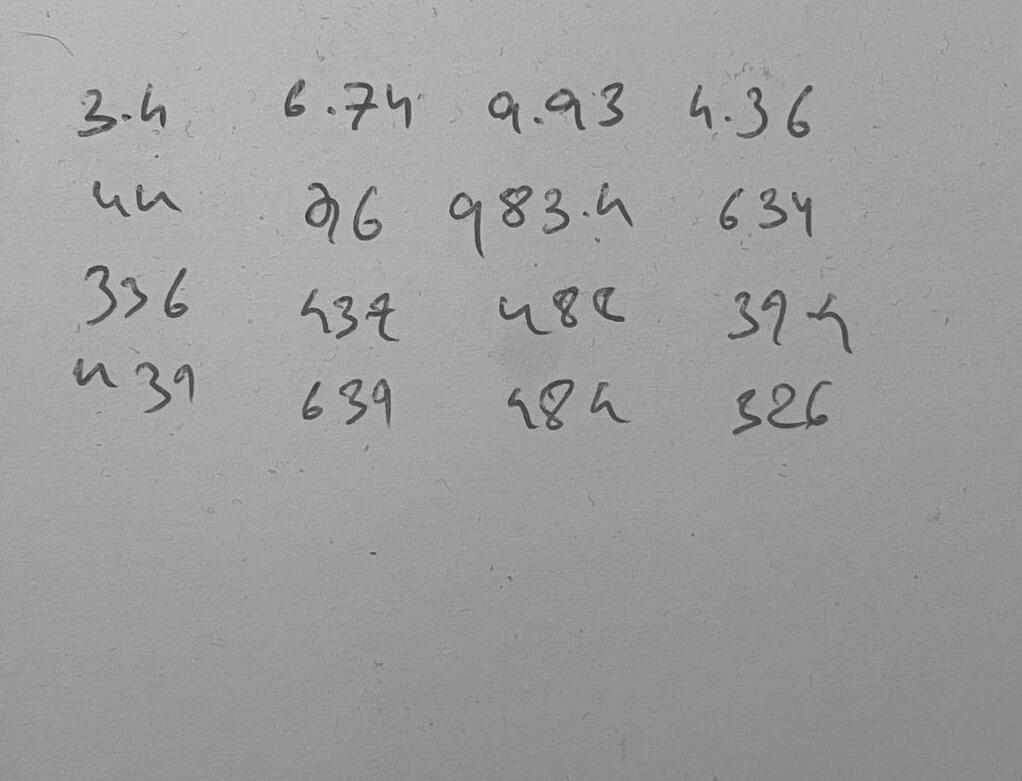 3.4 6.74 9.93 4.36
44 96 983.4 634
336 437 488 394
439 639 484 326